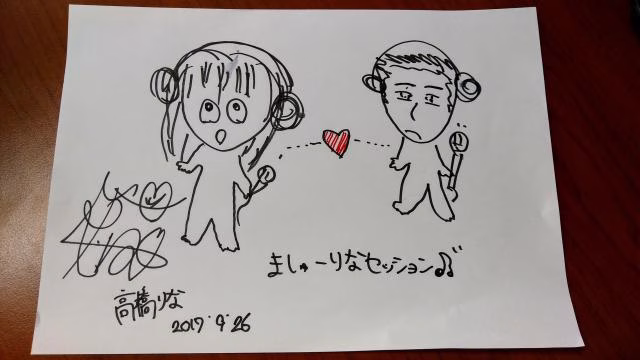 ましゅーりなセッション♫
高橋りな
2017.9.26